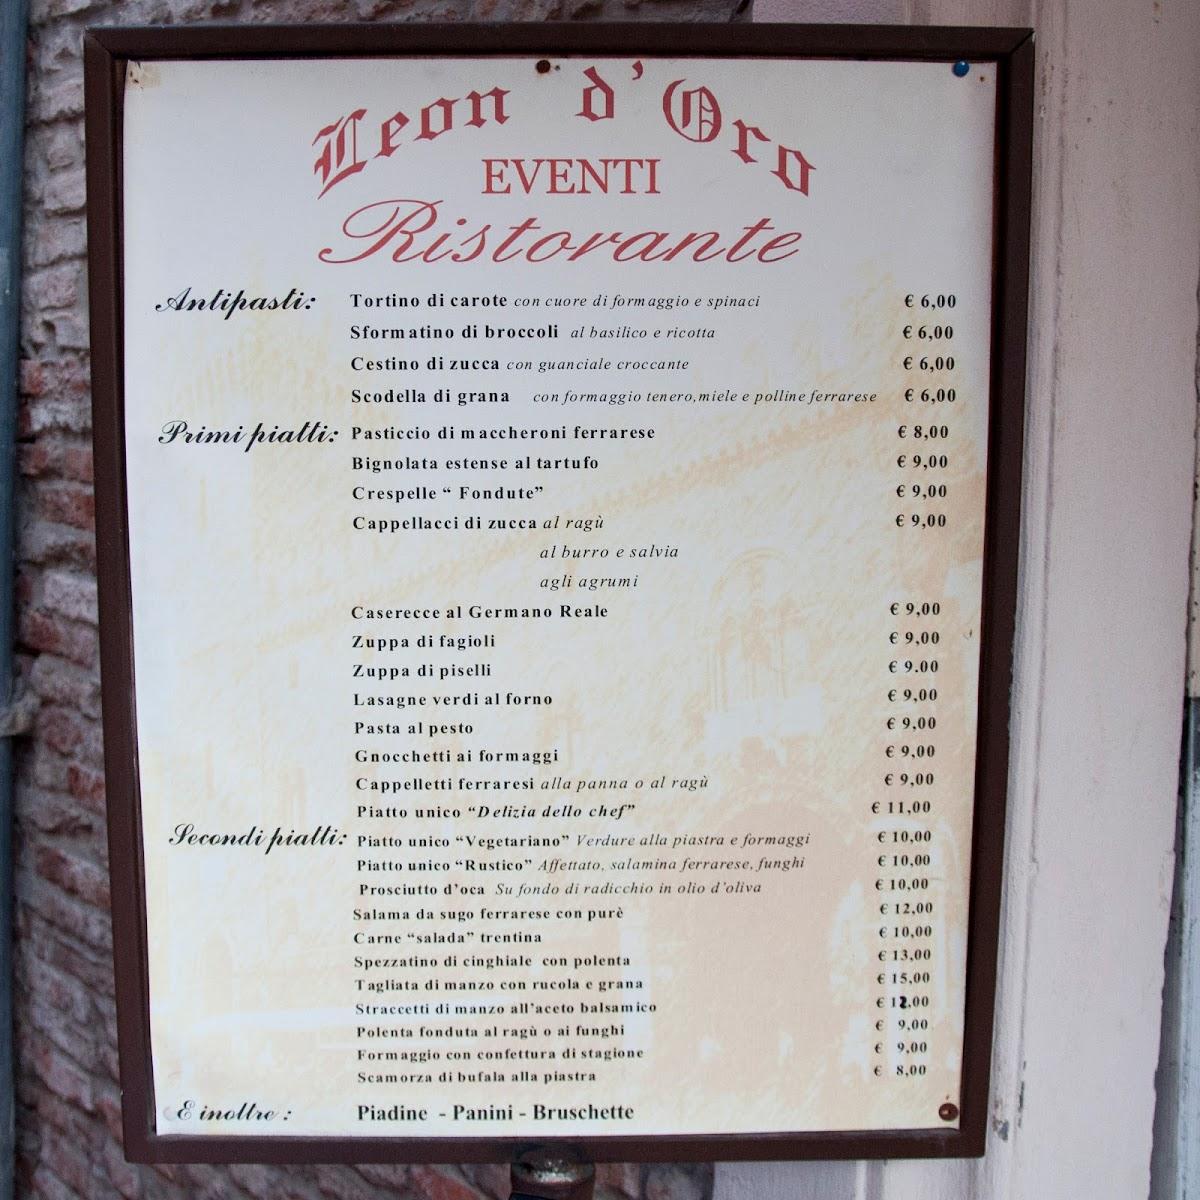 Leon d'Oro
EVENTI
Ristorante
Antipasti: Tortino di carote con cuore di formaggio e spinaci € 6,00
Sformatino di broccoli al basilico e ricotta € 6,00
Cestino di zucca con guanciale croccante € 6,00
Scodella di grana con formaggio tenero,miele e polline ferrarese € 6,00
Primi piatti: Pasticcio di maccheroni ferrarese € 8,00
Bignolata estense al tartufo € 9,00
Crespelle “ Fondute” € 9,00
Cappellacci di zucca al ragù € 9,00
al burro e salvia
agli agrumi
Caserecce al Germano Reale € 9,00
Zuppa di fagioli € 9,00
Zuppa di piselli € 9.00
Lasagne verdi al forno € 9,00
Pasta al pesto € 9,00
Gnocchetti ai formaggi € 9,00
Cappelletti ferraresi alla panna o al ragù € 9,00
Piatto unico “Delizia dello chef” € 11,00
Secondi piatti: Piatto unico “Vegetariano” Verdure alla piastra e formaggi € 10,00
Piatto unico “Rustico” Affettato, salamina ferrarese, funghi € 10,00
Prosciutto d’oca Su fondo di radicchio in olio d’oliva € 10,00
Salama da sugo ferrarese con purè € 12,00
Carne “salada” trentina € 10,00
Spezzatino di cinghiale con polenta € 13,00
Tagliata di manzo con rucola e grana € 15,00
Straccetti di manzo all’aceto balsamico € 12,00
Polenta fonduta al ragù o ai funghi € 9,00
Formaggio con confettura di stagione € 9,00
Scamorza di bufala alla piastra € 8,00
E inoltre : Piadine - Panini - Bruschette